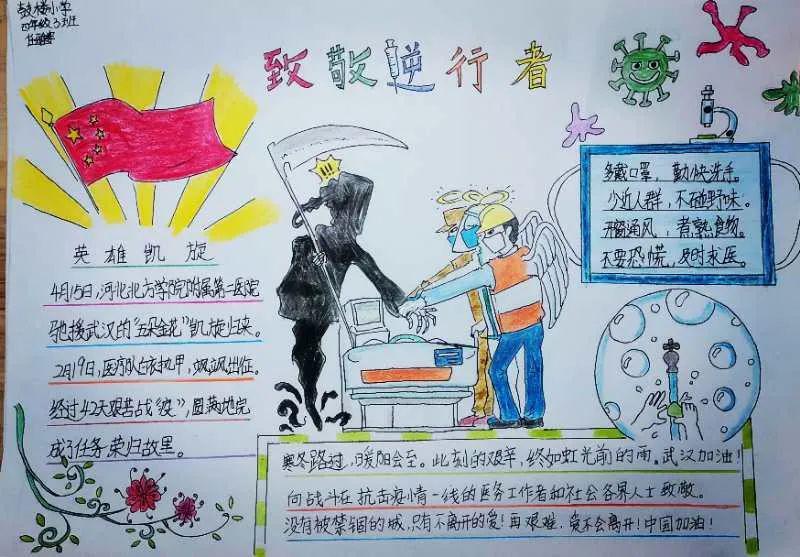 鼓楼小学
四年级3班
致敬逆行者
英雄凯旋
4月15日,河北北方学院附属第一医院
驰援武汉的“五朵金花”凯旋归来。
2月19日,医疗队白衣执甲,飒飒出征。
经过42天艰苦战“疫”,圆满地完
成了任务荣归故里。
多戴口罩,勤快洗手。
少近人群,不碰野味。
开窗通风,煮熟食物。
不要恐慌,及时求医。
寒冬路过,暖阳会至。此刻的艰辛,终如虹光前的雨。武汉加油!
向战斗在抗击疫情一线的医务工作者和社会各界人士致敬。
没有被禁锢的城,只有不离开的爱!再艰难,爱不会离开!中国加油!